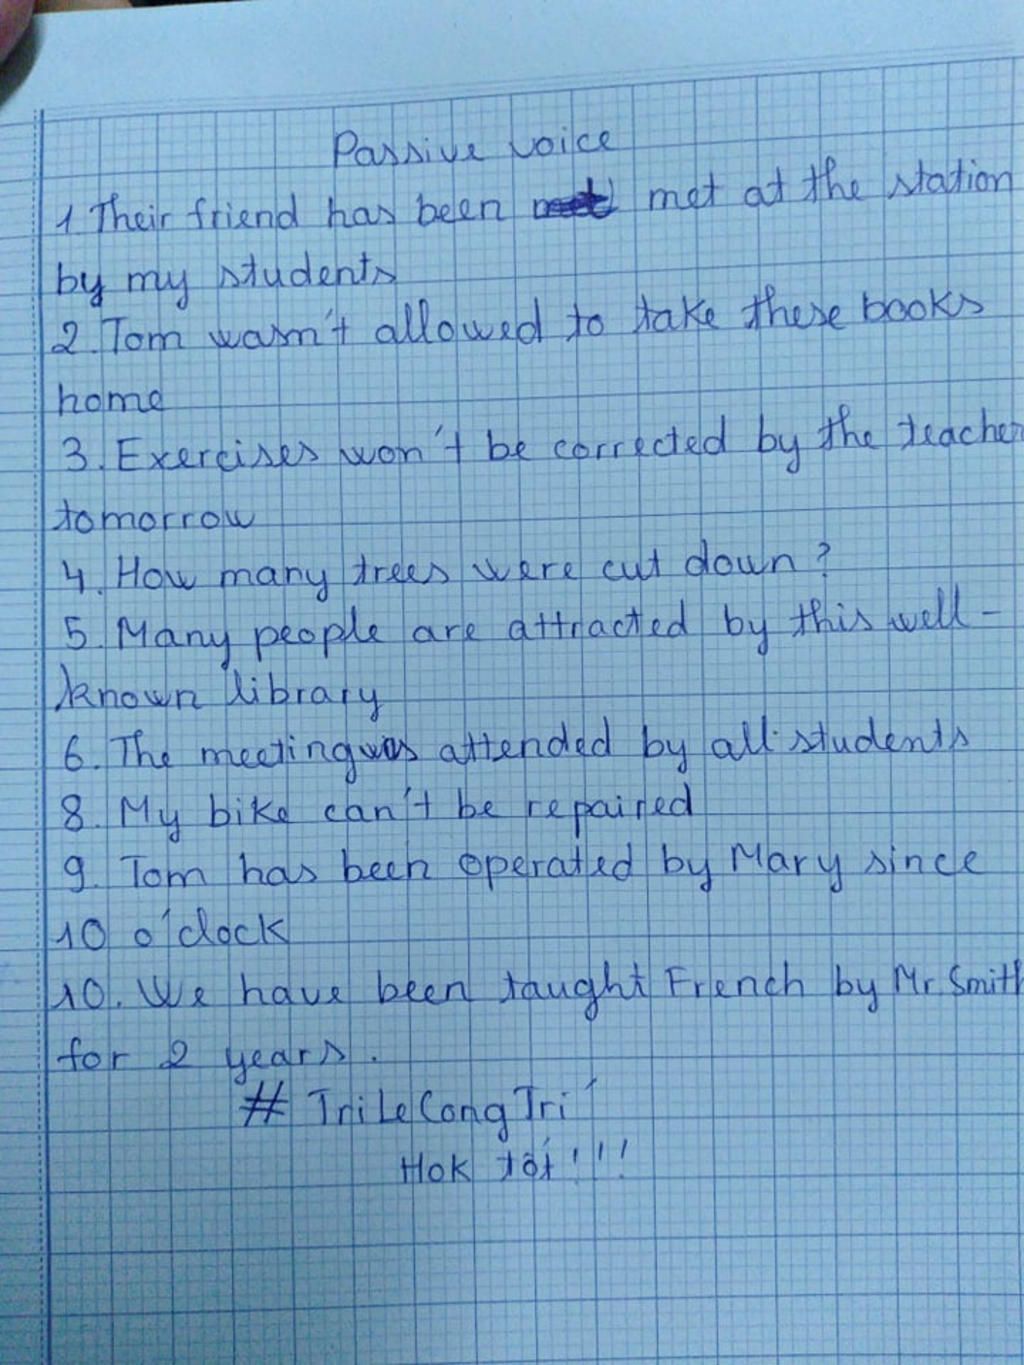 Passive voice
1 Their friend has been met at the station
by my students
2. Tom wasn't allowed to take these books
home
3. Exercises won't be corrected by the teacher
tomorrow
4. How many trees were cut down?
5. Many people are attracted by this well-
known library
6. The meeting was attended by all students
8. My bike can't be repaired
9. Tom has been operated by Mary since
10 o'clock
10. We have been taught French by Mr. Smith
for 2 years.
# TriLeCongTri
Hok tốt!!!